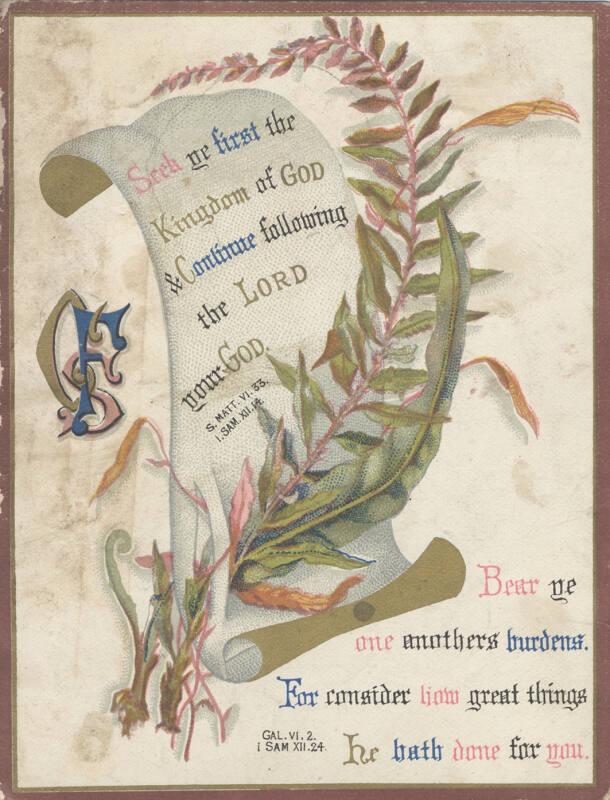 Seek ye first the
Kingdom of GOD
& Continue following
the LORD
your GOD.
S. MATT. VI. 33.
I. SAM. XII. 14.
GFS
Bear ye
one anothers burdens.
For consider how great things
He hath done for you.
GAL. VI. 2.
I SAM XII. 24.